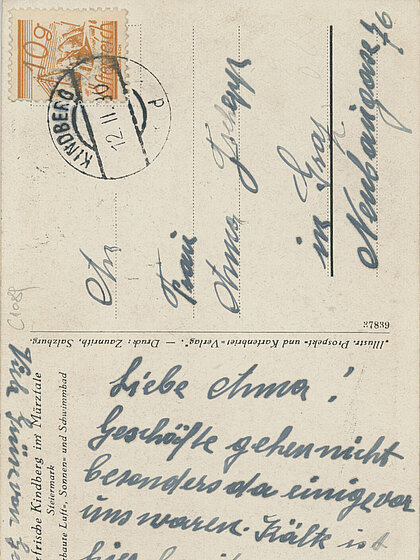 10g
Österreich
KINDBERG
12.II.30
d
An
Frau
Anna
in Graz
Neubaugasse 76
63873
"Illustr. Prospekt- und Kartenbrief-Verlag". — Druck: Zaunrith, Salzburg.
frische Kindberg im Mürztale
Steiermark
baute Luft-, Sonnen- und Schwimmbad
Liebe Anna!
Geschäfte gehen nicht
besonders da einige vor
uns waren. Kälte ist